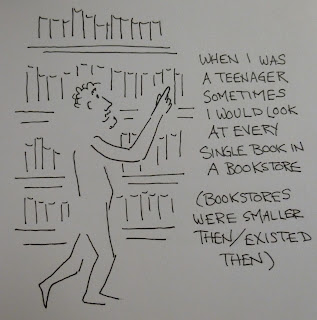 WHEN I WAS
A TEENAGER
SOMETIMES
I WOULD LOOK
AT EVERY
SINGLE BOOK IN
A BOOKSTORE
(BOOKSTORES
WERE SMALLER
THEN/EXISTED
THEN)